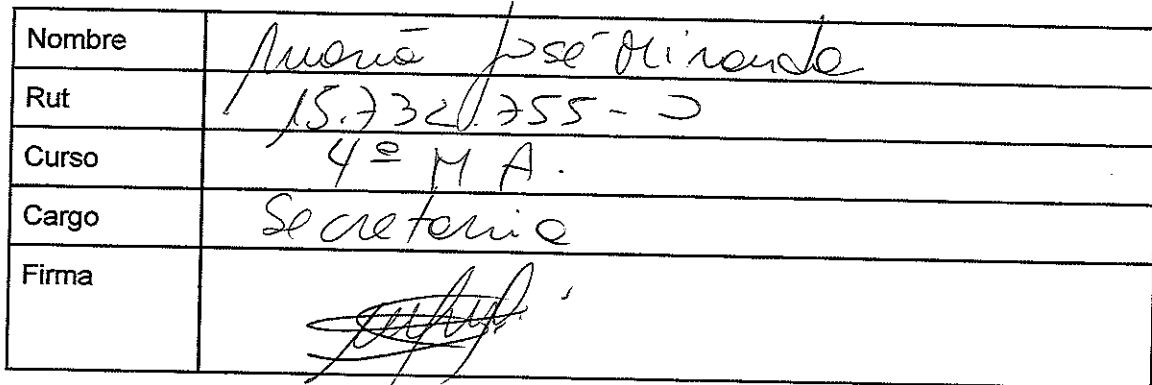 Nombre María José Miranda
Rut 15.732.755-
Curso 4º M A.
Cargo Secretaria
Firma